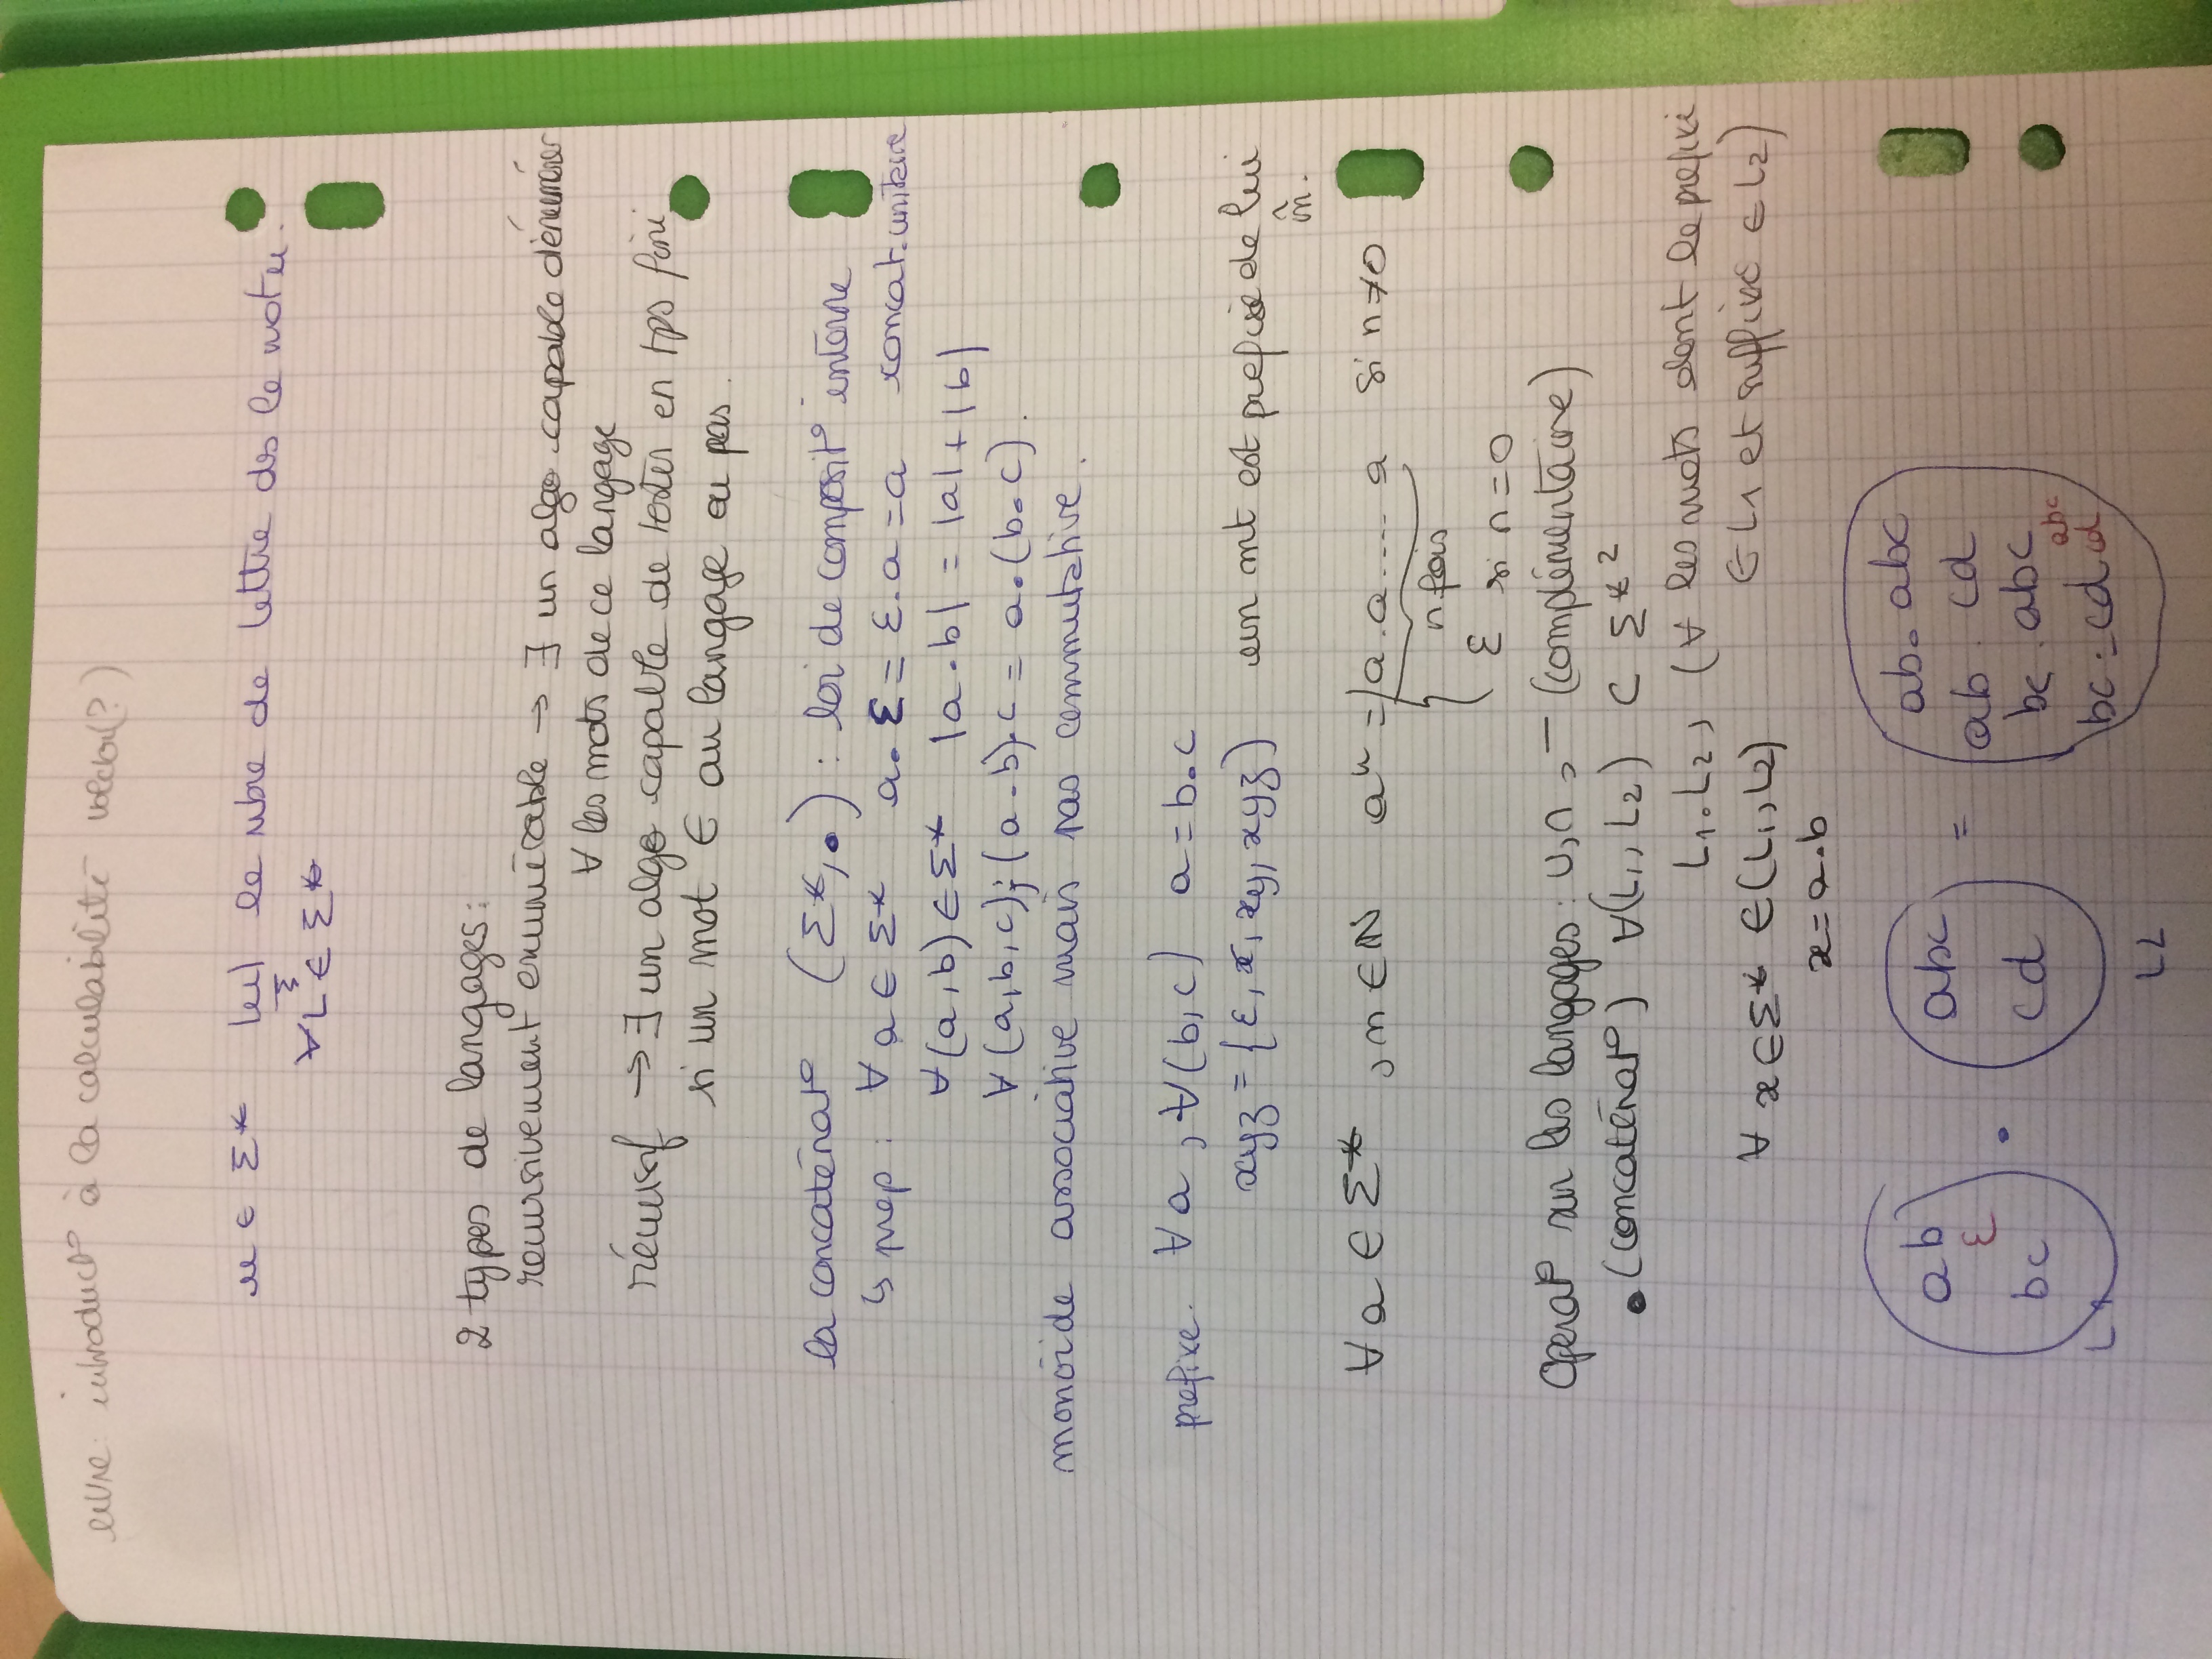 introduct° à la calculabilité (?)
u ∈ Σ* |u| le nbre de lettre ds le mot u.
∀L ∈ Σ*
2 types de langages:
recursivement enumérable → ∃ un algo capable d'énumérer
∀ les mots de ce langage
récursif → ∃ un algo capable de tester en tps fini
si un mot ∈ au langage ou pas.
la concaténat° (Σ*, •) : loi de composit° interne
↳ prop : ∀ a ∈ Σ* a. ε = ε.a = a concat. unitaire
∀(a,b) ∈ Σ* |a.b| = |a|+|b|
∀(a,b,c); (a.b).c = a.(b.c).
monoïde associative mais pas commutative.
prefixe. ∀a, ∀(b,c) a=b.c
xyz = {ε, x, xy, xyz) un mt est prefixe de lui
m̃.
∀ a ∈ Σ* , n ∈ ℕ aⁿ = { a.a.... a si n≠0
n fois
ε si n=0
Operat° sur les langages: ∪, ∩, ‾ (complémentaire)
• (concaténat°) ∀(L1, L2) ⊂ Σ*²
L1.L2, (∀ les mots dont le prefixe
∈ L1 et suffixe ∈ L2)
∀ x ∈ Σ* ∈ (L1, L2)
x = a.b
ab
ε
bc
L1
•
abc
cd
L2
=
ab. abc
ab . cd
bc . abc
abc
bc . cd cd